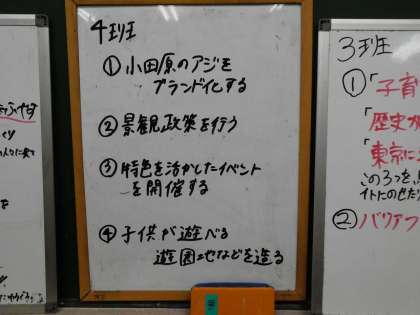 4班
① 小田原のアジを
ブランド化する
② 景観政策を行う
③ 特色を活かしたイベント
を開催する
④ 子供が遊べる
遊園地などを造る
3班
①「子育
「歴史が
「東京に
この3つを
イトにのせた
② バリアフ